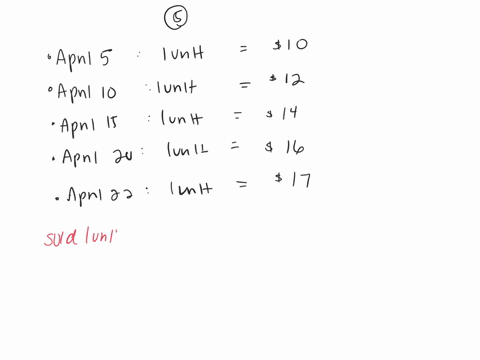 5
• April 5 : 1 unit = $10
• April 10 : 1 unit = $12
• April 15 : 1 unit = $14
• April 20 : 1 unit = $16
• April 22 : 1 unit = $17
sold 1 uni